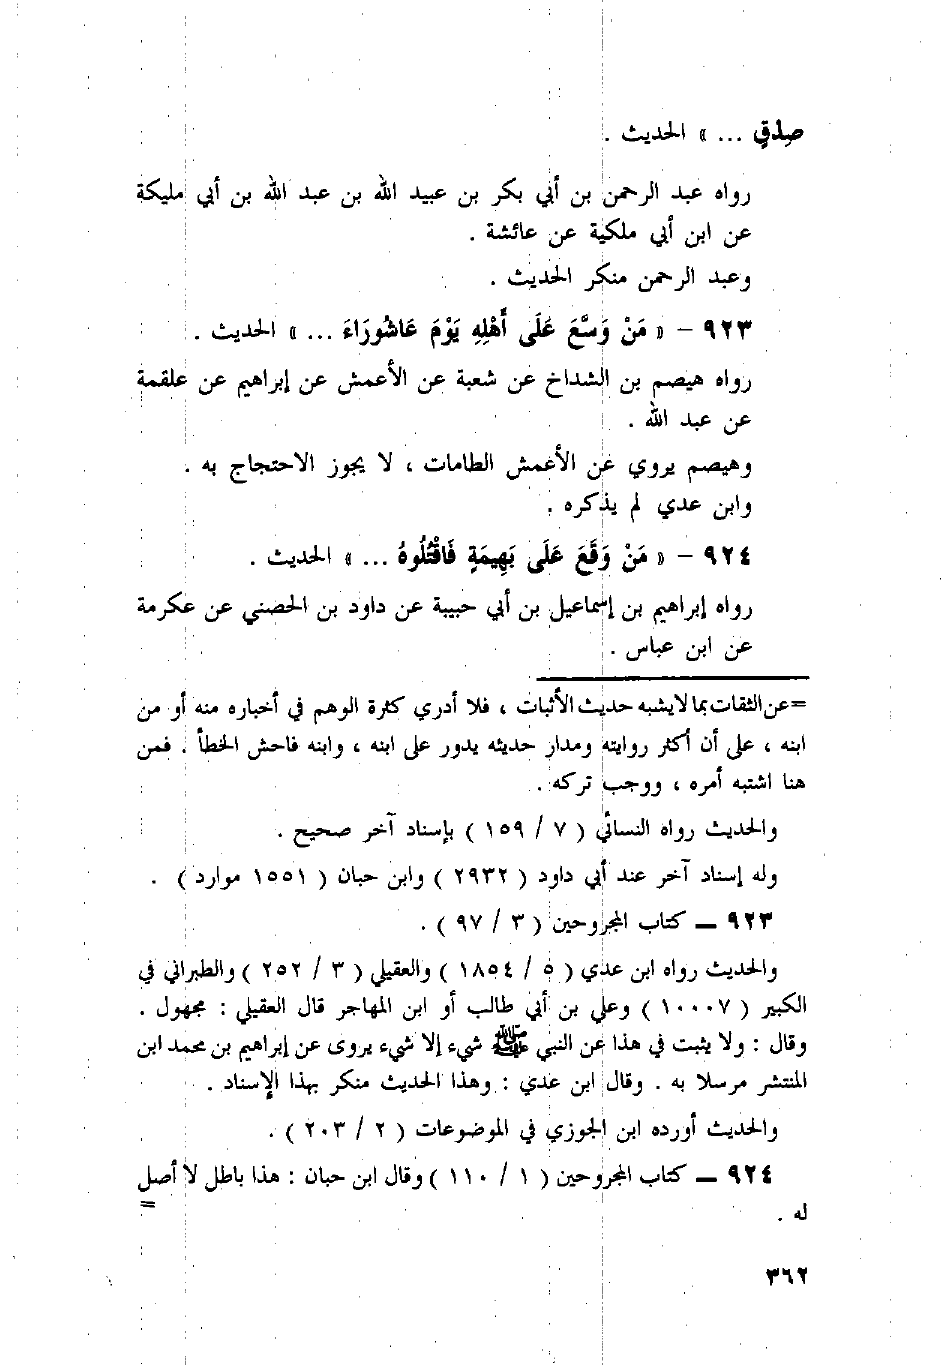 صِدْقٍ ... » الحديث .
رواه عبد الرحمن بن أبي بكر بن عبيد الله بن عبد الله بن أبي مليكة
عن ابن أبي ملكية عن عائشة .
وعبد الرحمن منكر الحديث .
٩٢٣ – « مَنْ وَسَّعَ عَلَى أَهْلِهِ يَوْمَ عَاشُورَاءَ ... » الحديث .
رواه هيصم بن الشداخ عن شعبة عن الأعمش عن إبراهيم عن علقمة
عن عبد الله .
وهيصم يروي عن الأعمش الطامات ، لا يجوز الاحتجاج به .
وابن عدي لم يذكره .
٩٢٤ – « مَنْ وَقَعَ عَلَى بَهِيمَةٍ فَاقْتُلُوهُ ... » الحديث .
رواه إبراهيم بن إسماعيل بن أبي حبيبة عن داود بن الحصني عن عكرمة
عن ابن عباس .
=عن الثقات بما لا يشبه حديث الأثبات ، فلا أدري كثرة الوهم في أخباره منه أو من
ابنه ، على أن أكثر روايته ومدار حديثه يدور على ابنه ، وابنه فاحش الخطأ . فمن
هنا اشتبه أمره ، ووجب تركه .
والحديث رواه النسائي ( ٧ / ١٥٩ ) بإسناد آخر صحيح .
وله إسناد آخر عند أبي داود ( ٢٩٣٢ ) وابن حبان ( ١٥٥١ موارد ) .
٩٢٣ ــ كتاب المجروحين ( ٣ / ٩٧ ) .
والحديث رواه ابن عدي ( ٥ / ١٨٥٤ ) والعقيلي ( ٣ / ٢٥٢ ) والطبراني في
الكبير ( ١٠٠٠٧ ) وعلي بن أبي طالب أو ابن المهاجر قال العقيلي : مجهول .
وقال : ولا يثبت في هذا عن النبي ﷺ شيء إلا شيء يروى عن إبراهيم بن محمد ابن
المنتشر مرسلا به . وقال ابن عدي : وهذا الحديث منكر بهذا الإسناد .
والحديث أورده ابن الجوزي في الموضوعات ( ٢ / ٢٠٣ ) .
٩٢٤ ــ كتاب المجروحين ( ١ / ١١٠ ) وقال ابن حبان : هذا باطل لا أصل
له . =
٣٦٢